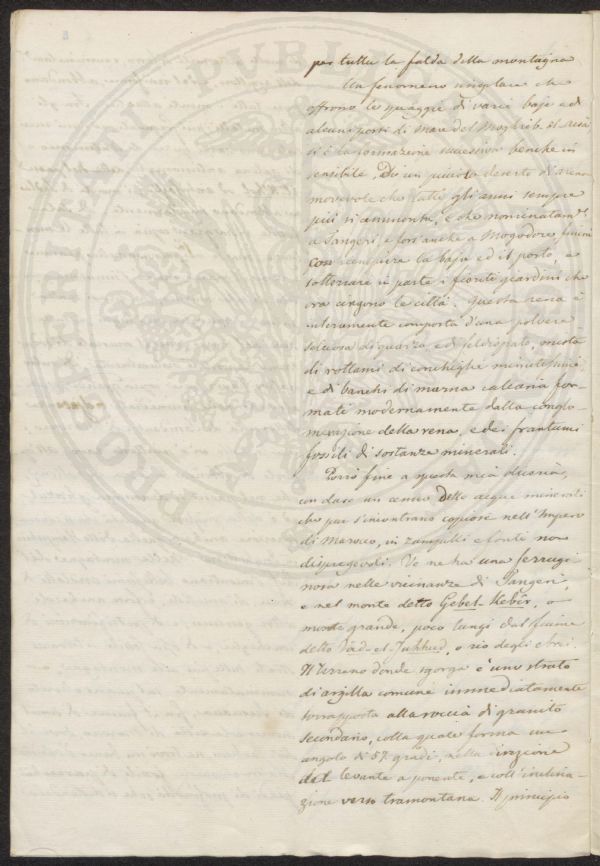 per tutta la falda della montagna
Un fenomeno singolare che
offrono le spiaggie di varie baje e di
alcuni porti di Mare del Moghrib
si è la formazione successiva benchè in
sensibile, di un piccolo deserto di arena
movevole che tutti gli anni sempre
più si ammonta, e che nominatam.e
a Tangeri, e fors'anche a Mogodore, finirà
con riempire la baja ed il porto, e
sotterrare in parte i fioriti giardini che
ora cingono le città. Questa rena è
interamente composta d'una polvere
selciosa di quarzo e di feldspato, mista
di rottami di conchiglie minutissimi
e di banchi di marna calcaria for-
mate modernamente dalla conglo-
merazione della rena, e dei frantumi
fossili di sostanze minerali.
Porrò fine a questa mia
con dare un cenno delle acque minerali
che pur s'incontrano copiose nell'Impero
di Marocco, in zampilli e fonti non
dispregevoli. Ve ne ha una ferrugi
nosa nelle vicinanze di Tangeri,
e nel monte detto Gebel-Kebir, o
monte grande, poco lungi dal fiume
detto Uàd-el-Juhhud, o rio degli ebrei.
Il terreno donde sgorga è uno strato
di argilla comune immediatamente
sovrapposta alla roccia di granito
secondario, colla quale forma un
angolo di 57 gradi, nella direzione
del levante a ponente, e coll'inclina
zione verso tramontana. Il principio